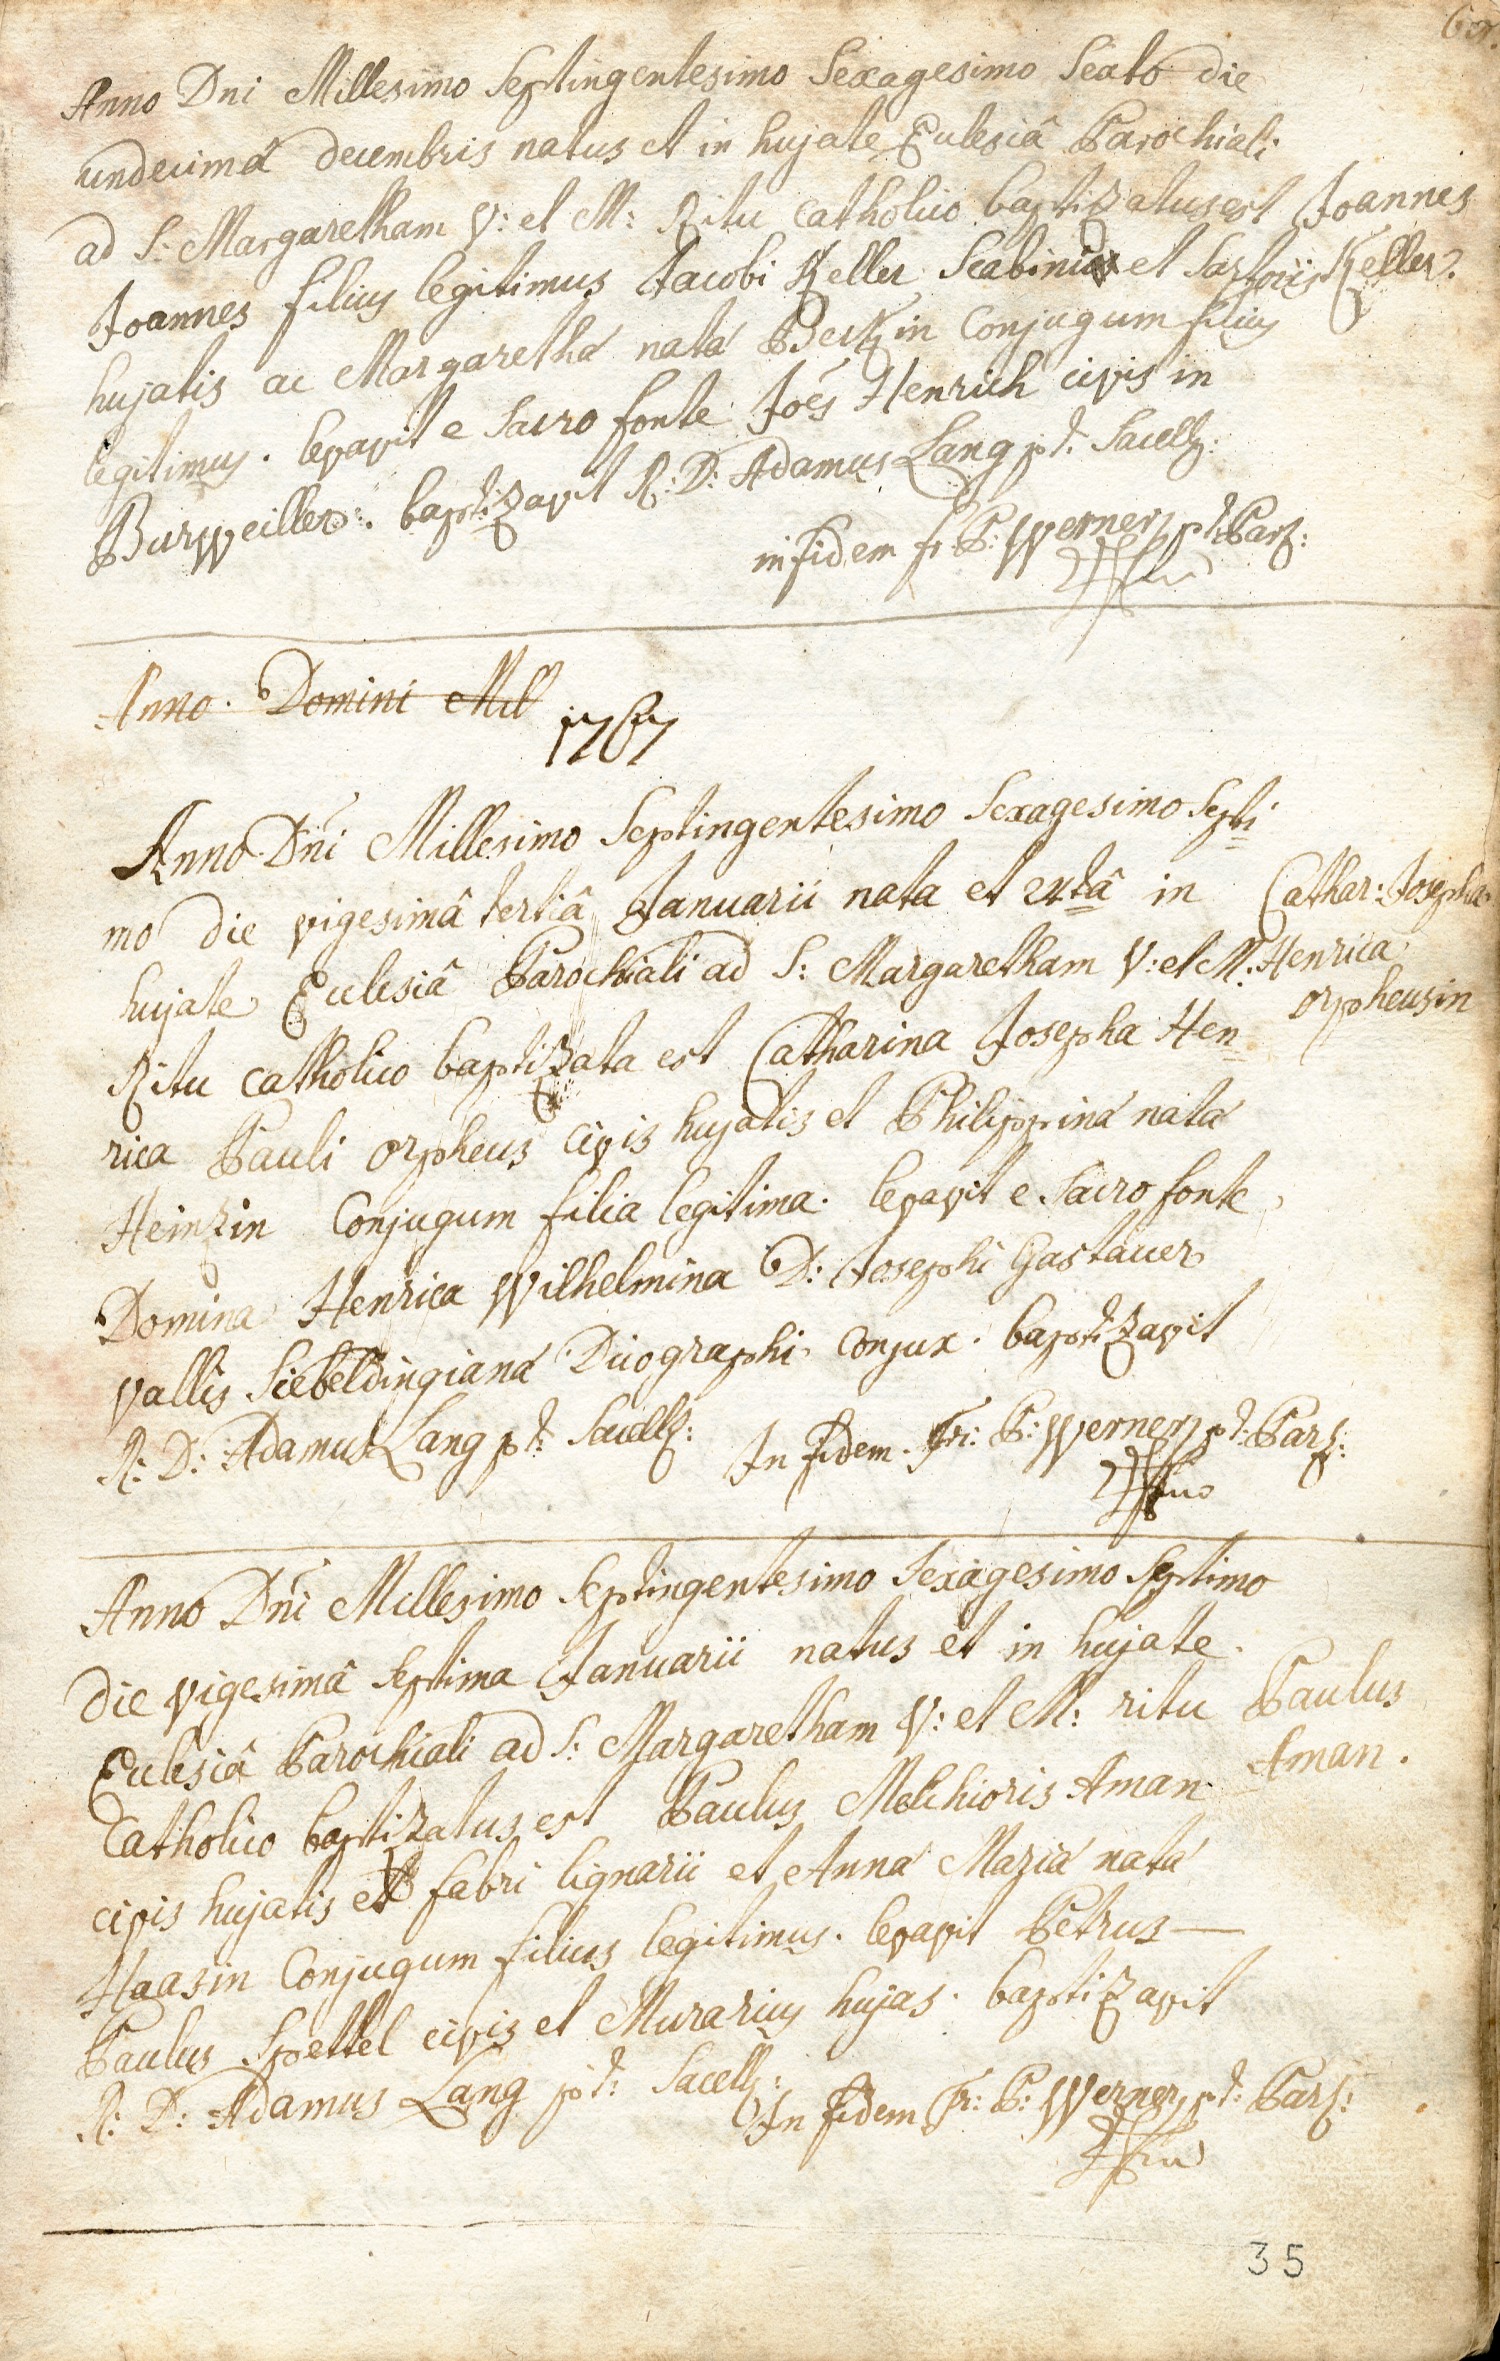 Anno Dni Millesimo Septingentesimo Sexagesimo Sexto die
undecimâ decembris natus et in hujate Ecclesiâ Parochiali
ad S: Margaretham V: et M: Ritu catholico baptizatus est
Joannes
Joannes filius legitimus Jacobi Keller Scabini et Sartoris
Keller.
hujatis ac Margarethâ natâ Beckin Conjugum filius
legitimus. levavit e Sacro fonte Joês Henrich civis in
Burweiller. baptizavit R: D: Adamus Lang p.t. Sacell:
in fidem fr: P: Werner p.t. Par:
Anno Domini Mill
1767
Anno Dni Millesimo Septingentesimo Sexagesimo Septi=
mo die vigesimâ tertiâ Januarii nata et 24tâ in
Cathar: Josepha
hujate Ecclesiâ Parochiali ad S: Margaretham V: et M:
Henrica
orpheusin
Ritu catholico baptizata est Catharina Josepha Hen=
rica Pauli orpheus civis hujatis et Philippinâ natâ
Heinzin Conjugum filia legitima. levavit e Sacro fonte
Domina Henrica Wilhelmina D: Josephi Gastauer
vallis Siebeldingianâ Dicographi conjux. baptizavit
R: D: Adamus Lang p.t: Sacell:
In fidem Fr: P: Werner p.t: Par:
Anno Dni Millesimo Septingentesimo Sexagesimo Septimo
die vigesimâ Septima Januarii natus et in hujate
Ecclesiâ Parochiali ad S: Margaretham V: et M: ritu
Paulus
Aman.
Catholico baptizatus est Paulus Melchioris Aman
civis hujatis et fabri lignarii et Annâ Mariâ natâ
Haasin Conjugum filius legitimus. levavit Petrus —
Paulus Spettel civis et Murarius hujas. baptizavit
R: D: Adamus Lang p.t: Sacell:
In fidem Fr: P: Werner p.t: Par:
35